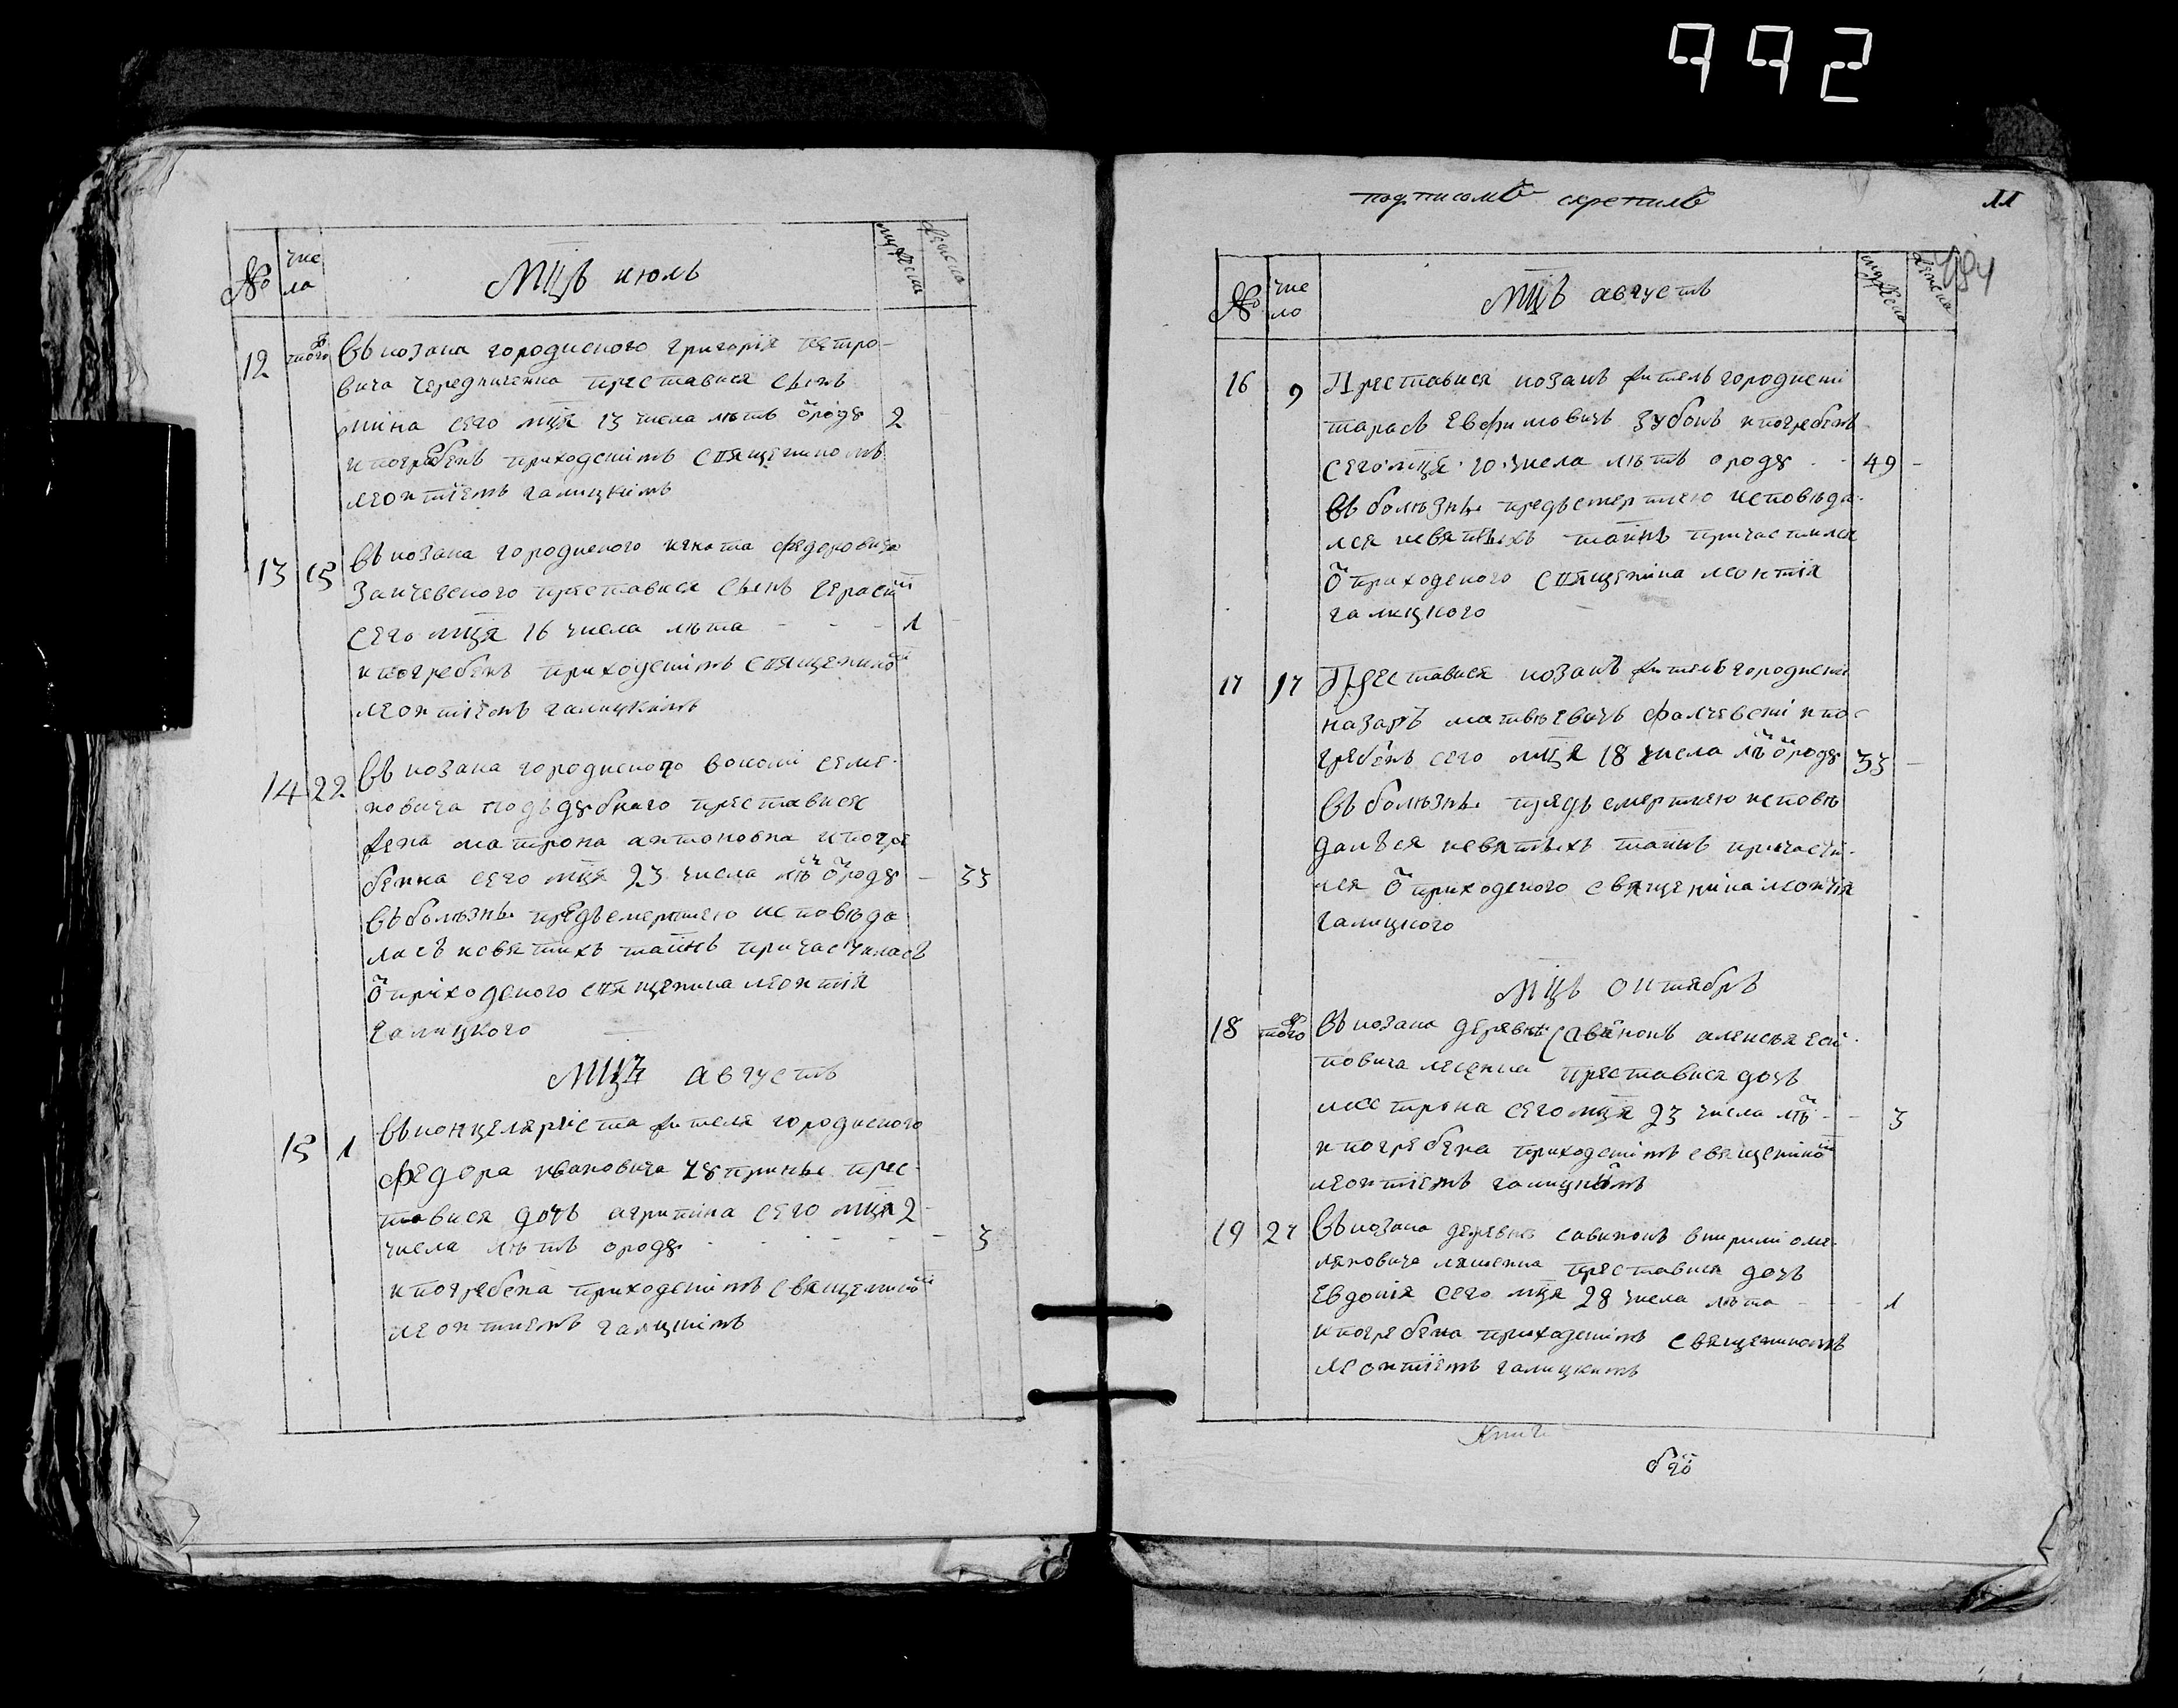 992
№
чис
ла
МЦЪ июль
мужеска
женска
12 того въ козака городиского григорія петро-
вича чередниченка преставися сынъ
мина сего мця 13 числа лѣтъ ѿроду 2
и погребенъ приходскимъ священикомъ
леонтіемъ галицкимъ
13 15 въ козака городиского игната федоровича
преставися сынъ герасим
сего мця 16 числа лѣта - - - 1
и погребенъ приходскимъ священико
леонтіемъ галицкимъ
14 22 въ козака городиского семе-
новича поддубного преставися
жена матрона антоновна и погре
бенна сего мця 23 числа лѣ ѿроду - 33
въ болѣзнѣ предъ смертию исповѣда
лась и святихъ таинъ причастилась
ѿ приходского священика леонтія
галицкого
МЦЪ августъ
15 1 въ канцеляриста жителя городиского
федора ивановича чуприны прес-
тавися дочь агрипина сего мця 2
числа лѣтъ ѿроду - - - - 3
и погребена приходскимъ священико
леонтиемъ галицкимъ
подписомъ скрепилъ
11
№
чис
ло
МЦЪ августъ
мужеска
женска
16 9 Преставися козакъ житель городиский
тарасъ евфимовичъ зубокъ и погребенъ
сего мця 10 числа лѣтъ ѿроду - - 49 -
въ болѣзнѣ предъ смертию исповѣда-
лся и святыхъ таинъ причастился
ѿ приходского священика леонтія
галицкого
17 17 Преставися козакъ житель городиский
назаръ матвѣевичъ фалчевскі и по-
гребенъ сего мця 18 числа лѣ ѿроду 33 -
въ болѣзнѣ предъ смертию исповѣ
дался и святыхъ таинъ причасти-
лся ѿ приходского священика леонтія
галицкого
МЦЪ октябрь
18 того въ козака деревнѣ савинокъ алексѣя
преставися дочь
сего мця 23 числа лѣ - - 3
и погребена приходскимъ священико
леонтіемъ галицкимъ
19 27 въ козака деревнѣ савинокъ омел-
яновича ляшенка преставися дочь
евдокія сего мця 28 числа лѣта - - - 1
и погребена приходскимъ священикомъ
леонтіемъ галицкимъ